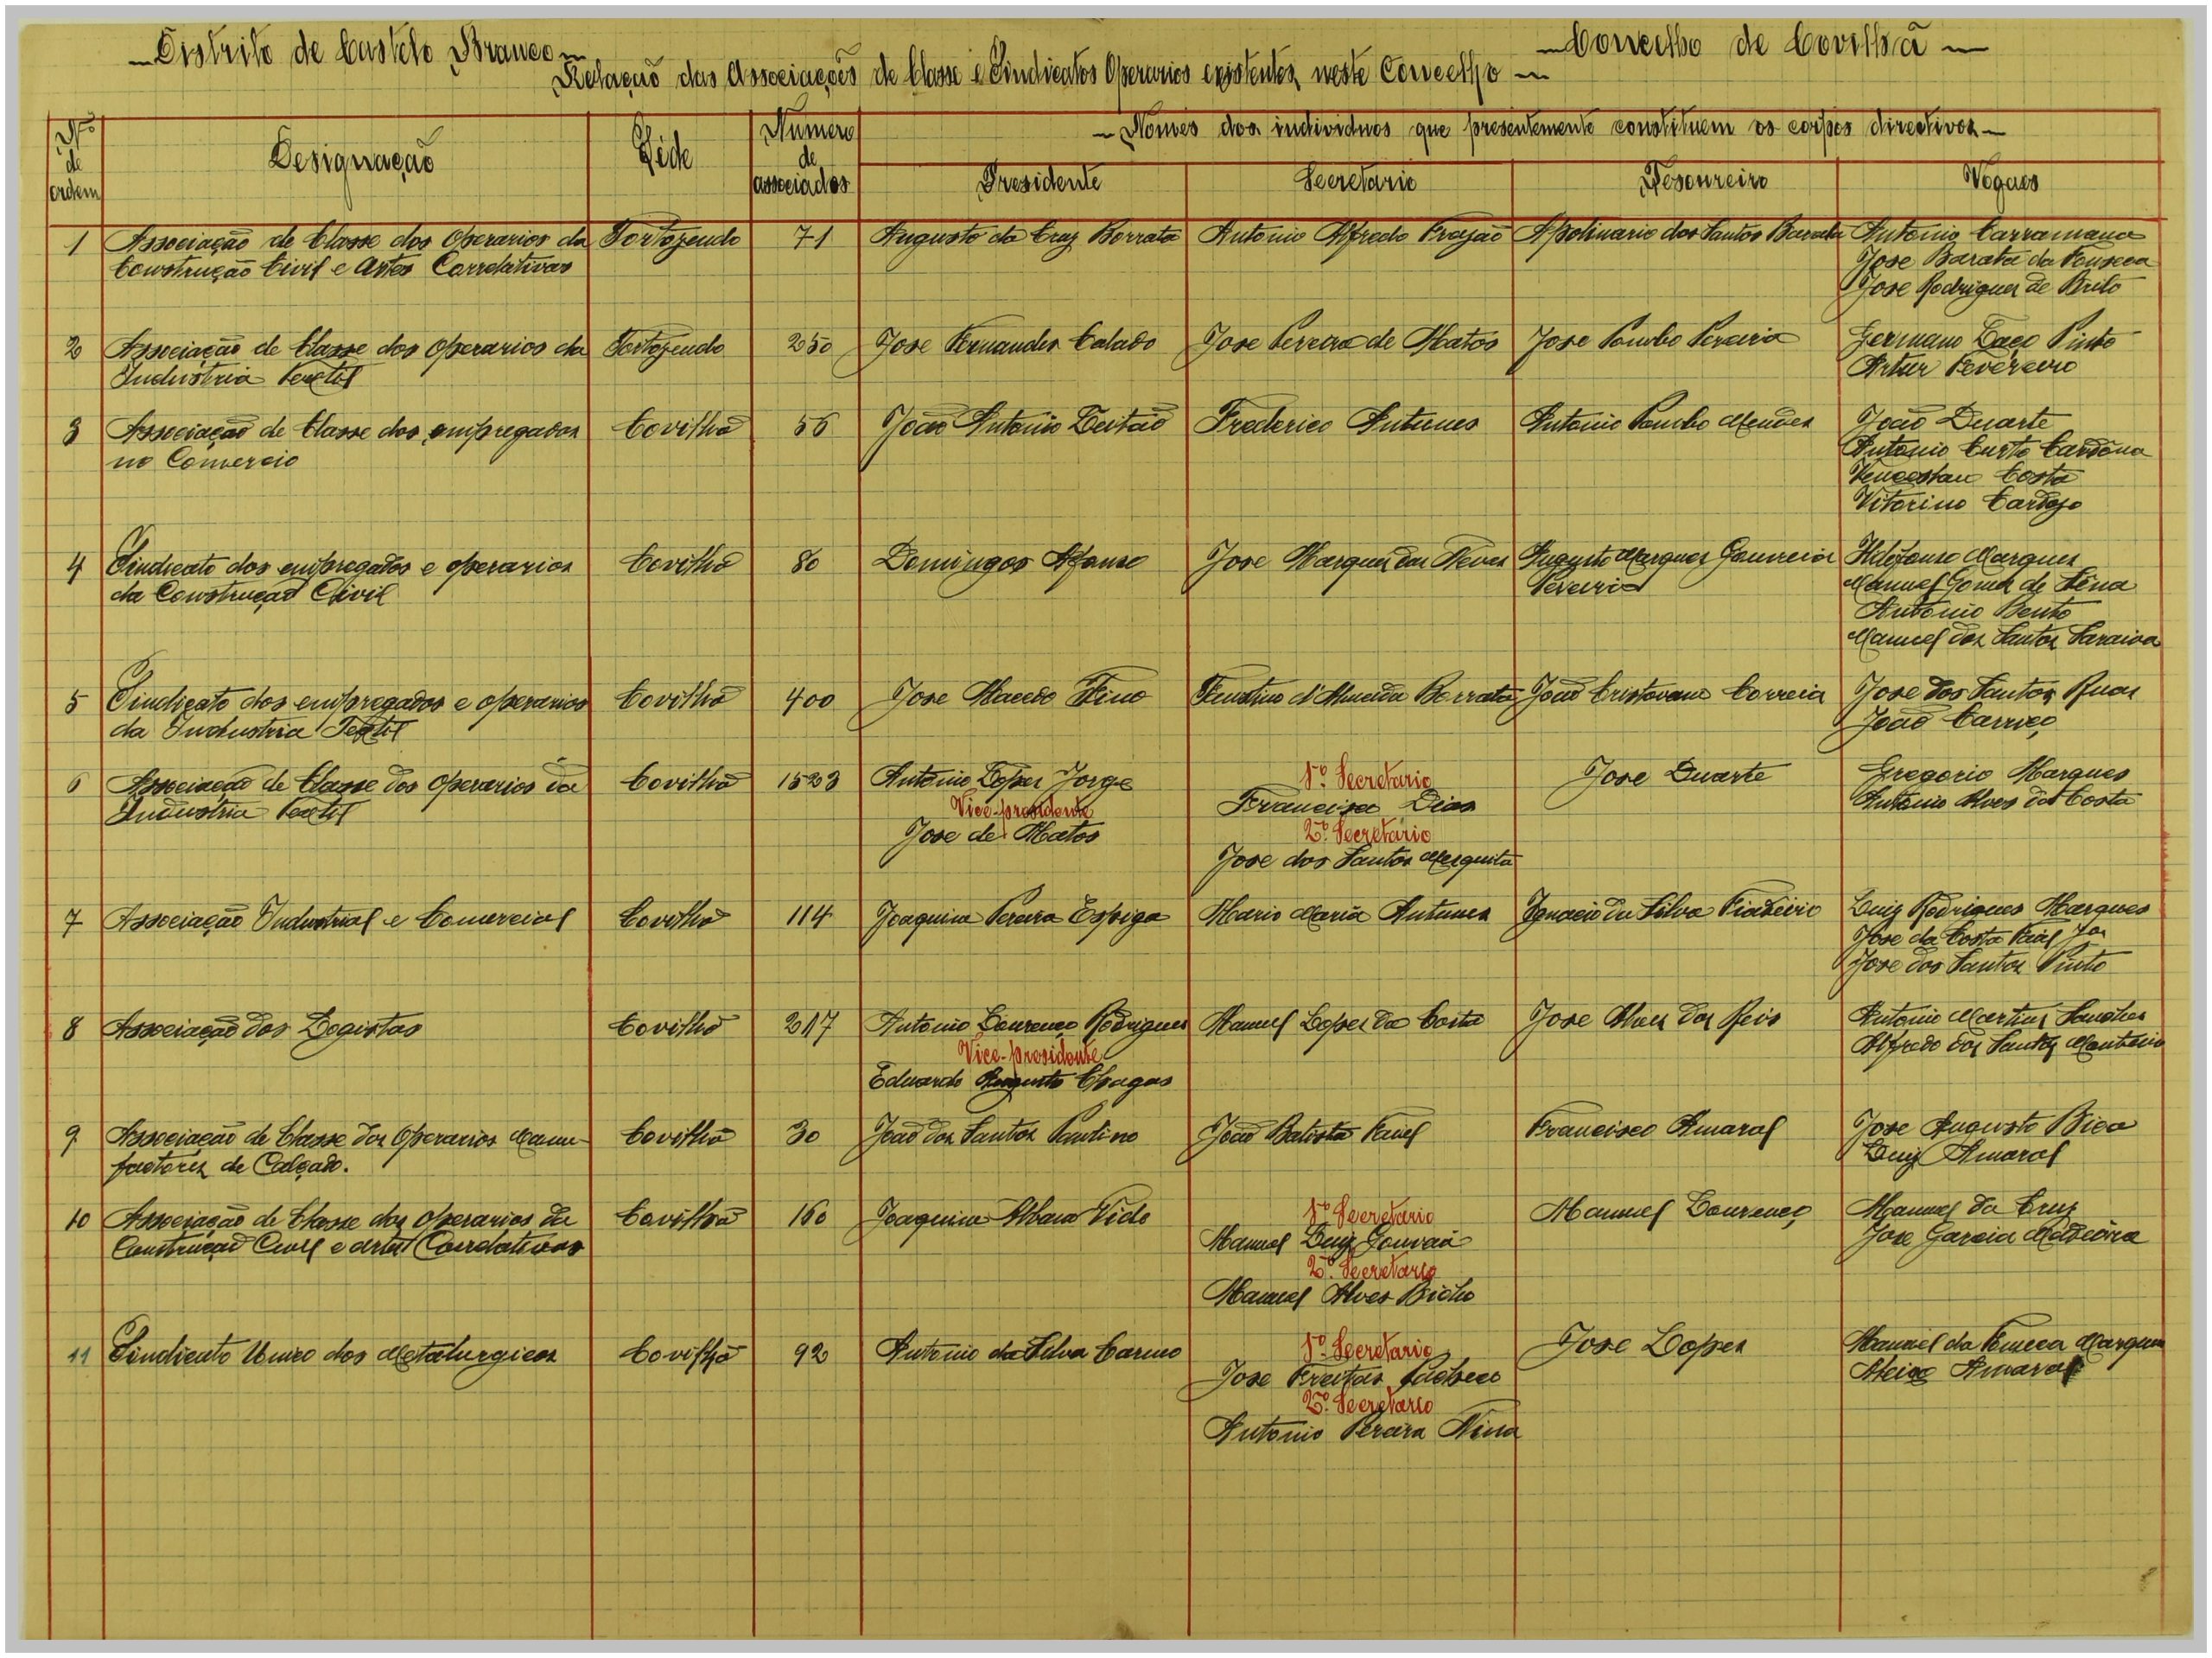 Distrito de Castelo Branco
Concelho de Covilhã
Relação das Associações de Classe e Sindicatos Operarios existentes neste Concelho
Nº de ordem
Designação
Séde
Numero de associados
Nomes dos individuos que presentemente constituem os corpos directivos
Presidente
Secretario
Tesoureiro
Vogaes
1 Associação de Classe dos Operarios da Tortozendo 71 Augusto da Cruz Borrata Antonio Alfredo Frazão Apolinario dos Santos Barata Antonio Carramana
Construção Civil e Artes Correlativas
Jose Barata da Fonseca
Jose Rodrigues de Brito
2 Associação de Classe dos Operarios da Tortozendo 250 Jose Fernandes Calado Jose Pereira de Matos Jose Pombo Pereira Germano Laço Pinto
Industria Textil
Artur Fevereiro
3 Associação de Classe dos empregados Covilhã 56 João Antonio Leitão Frederico Antunes Antonio Pombo Mendes João Duarte
no Comercio
Antonio Curto Cardona
Venceslau Costa
Vitorino Cardozo
4 Sindicato dos empregados e operarios Covilhã 80 Domingos Afonso Jose Marques das Neves Augusto Marques Gouveia Ildefonso Marques
da Construção Civil
Pereira
Manuel Gomes de Sena
Antonio Bento
Manuel dos Santos Saraiva
5 Sindicato dos empregados e operarios Covilhã 400 Jose Macedo Fino Faustino d'Almeida Borrata João Cristovam Correia Jose dos Santos Ruas
da Industria Textil
João Carriço
6 Associação de Classe dos Operarios da Covilhã 1523 Antonio Lopes Jorge 1º Secretario Jose Duarte Gregorio Marques
Industria Textil
Vice-presidente
Francisco Dias
Antonio Alves da Costa
Jose de Matos
2º Secretario
Jose dos Santos Mesquita
7 Associação Industrial e Comercial Covilhã 114 Joaquim Pereira Espiga Mario Maria Antunes Ignacio da Silva Fiadeiro Luiz Rodrigues Marques
Jose da Costa
Jose dos Santos Pinto
8 Associação dos Logistas Covilhã 217 Antonio Lourenço Rodrigues Manuel Lopes da Costa Jose Alves dos Reis Antonio Martins Sanches
Vice-presidente
Alfredo dos Santos Monteiro
Eduardo Augusto Chagas
9 Associação de Classe dos Operarios Manu- Covilhã 30 João dos Santos Paulino João Batista Francisco Amaral Jose Augusto Bica
factores de Calçado.
Luiz Amaral
10 Associação de Classe dos Operarios da Covilhã 160 Joaquim 1º Secretario Manuel Lourenço Manuel da Cruz
Construção Civil e artes Correlativas
Manuel Luiz Gouveia
Jose Garcia Madeira
2º Secretario
Manuel Alves Bicho
11 Sindicato Unico dos Metalurgicos Covilhã 92 Antonio da Silva Carmo 1º Secretario Jose Lopes Manuel da Fonseca Marques
Jose Freitas Pacheco
Aleixo Amaral
2º Secretario
Antonio Pereira Nina